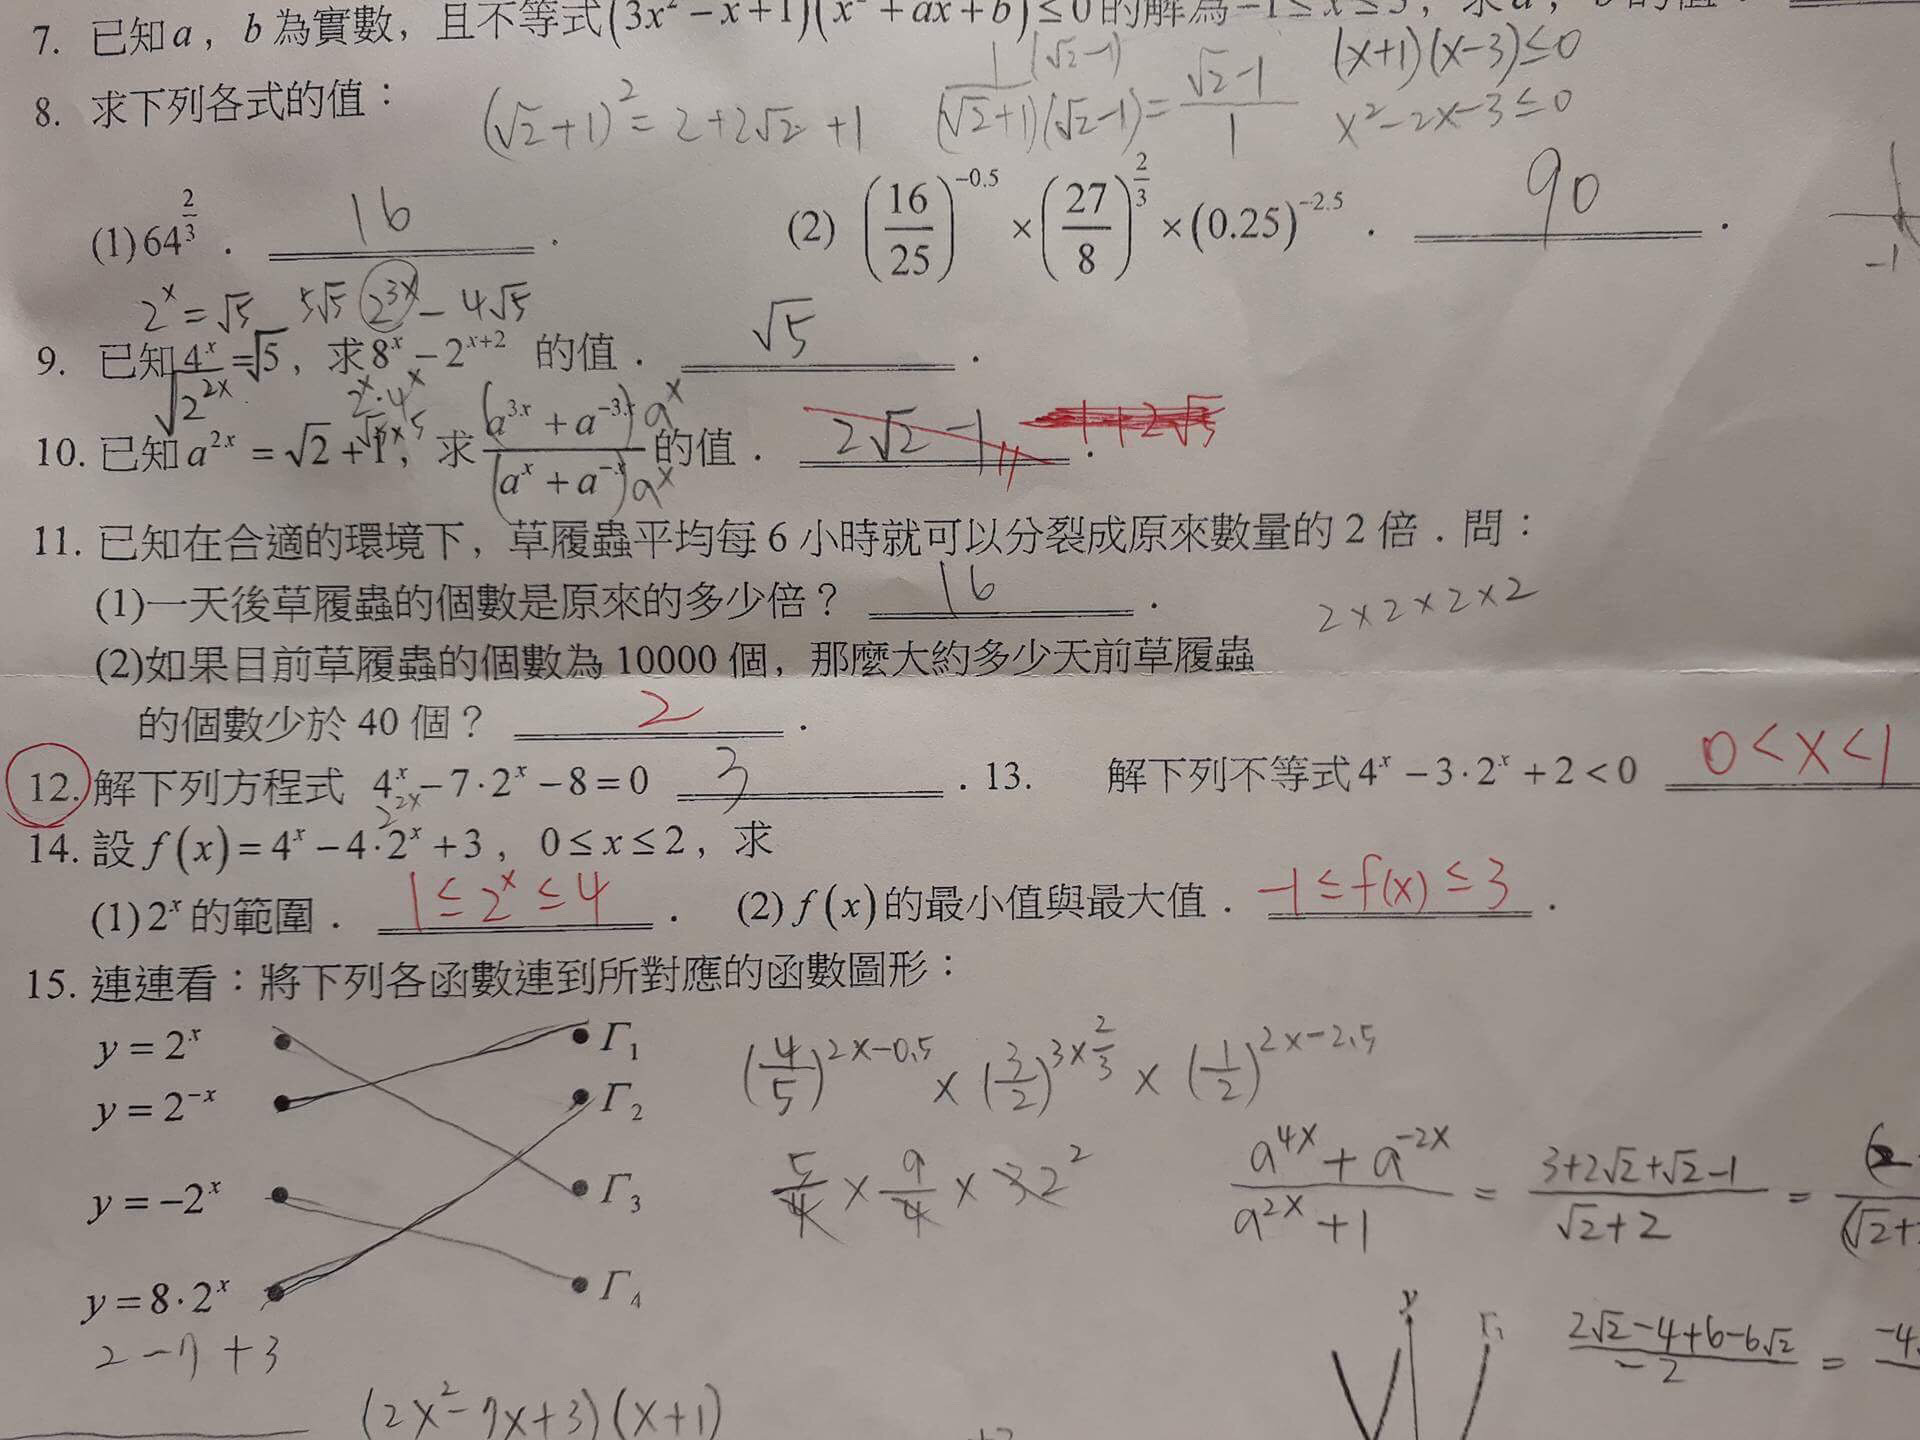 7. 已知a，b為實數，且不等式(3x²−x+1)(x²+ax+b)≤0的解為−1≤x≤3，求a，b的值．
(x+1)(x−3)≤0
8. 求下列各式的值：
(√2+1)² = 2+2√2+1
1(√2−1)/(√2+1)(√2−1) = √2−1/1
x²−2x−3≤0
(1) 64^(2/3)． 16．
(2) (16/25)^(−0.5) × (27/8)^(2/3) × (0.25)^(−2.5)． 90．
−1
2^x = √5
5√5 2^(3x) − 4√5
9. 已知4^x = √5，求8^x − 2^(x+2) 的值． √5．
√2^(2x)
2^x·4^x
√5×5
10. 已知a^(2x) = √2+1，求 (a^(3x)+a^(−3x))a^x/(a^x+a^(−x))a^x 的值． 2√2−1． 1+2√5
11. 已知在合適的環境下，草履蟲平均每6小時就可以分裂成原來數量的2倍．問：
(1)一天後草履蟲的個數是原來的多少倍？ 16．
2×2×2×2
(2)如果目前草履蟲的個數為10000個，那麼大約多少天前草履蟲
的個數少於40個？ 2．
12. 解下列方程式 4^x − 7·2^x − 8 = 0 3．
13. 解下列不等式 4^x − 3·2^x + 2 < 0 0<x<1
2^(2x)
14. 設 f(x) = 4^x − 4·2^x + 3，0≤x≤2，求
(1) 2^x 的範圍． 1≤2^x≤4．
(2) f(x)的最小值與最大值． −1≤f(x)≤3．
15. 連連看：將下列各函數連到所對應的函數圖形：
y = 2^x Γ₁
y = 2^(−x) Γ₂
y = −2^x Γ₃
y = 8·2^x Γ₄
(4/5)^(2×−0.5) × (3/2)^(3×2/3) × (1/2)^(2×−2.5)
5/4 × 9/4 × 32 2
a^(4x)+a^(−2x)/a^(2x)+1 = 3+2√2+√2−1/√2+2 =
2√2−4+6−6√2/−2 = −4
2−7+3
(2x²−7x+3)(x+1)
y
Γ₁